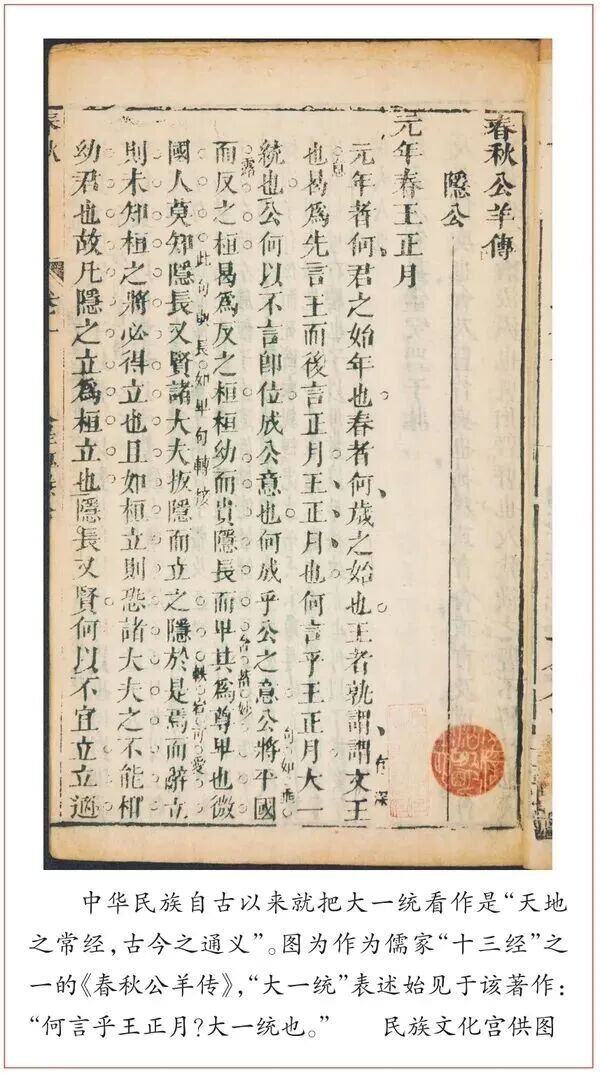 春秋公羊傳
隱公
元年春王正月
元年者何君之始年也春者何歲之始也王者孰謂謂文王
也曷爲先言王而後言正月王正月也何言乎王正月大一
統也公何以不言卽位成公意也何成乎公之意公將平國
而反之桓曷爲反之桓桓幼而貴隱長而卑其爲尊卑也微
國人莫知隱長又賢諸大夫扳隱而立之隱於是焉而辭立
則未知桓之將必得立也且如桓立則恐諸大夫之不能相
幼君也故凡隱之立爲桓立也隱長又賢何以不宜立立適
春秋
卷一
中华民族自古以来就把大一统看作是“天地
之常经,古今之通义”。图为作为儒家“十三经”之
一的《春秋公羊传》,“大一统”表述始见于该著作:
“何言乎王正月?大一统也。” 民族文化宫供图